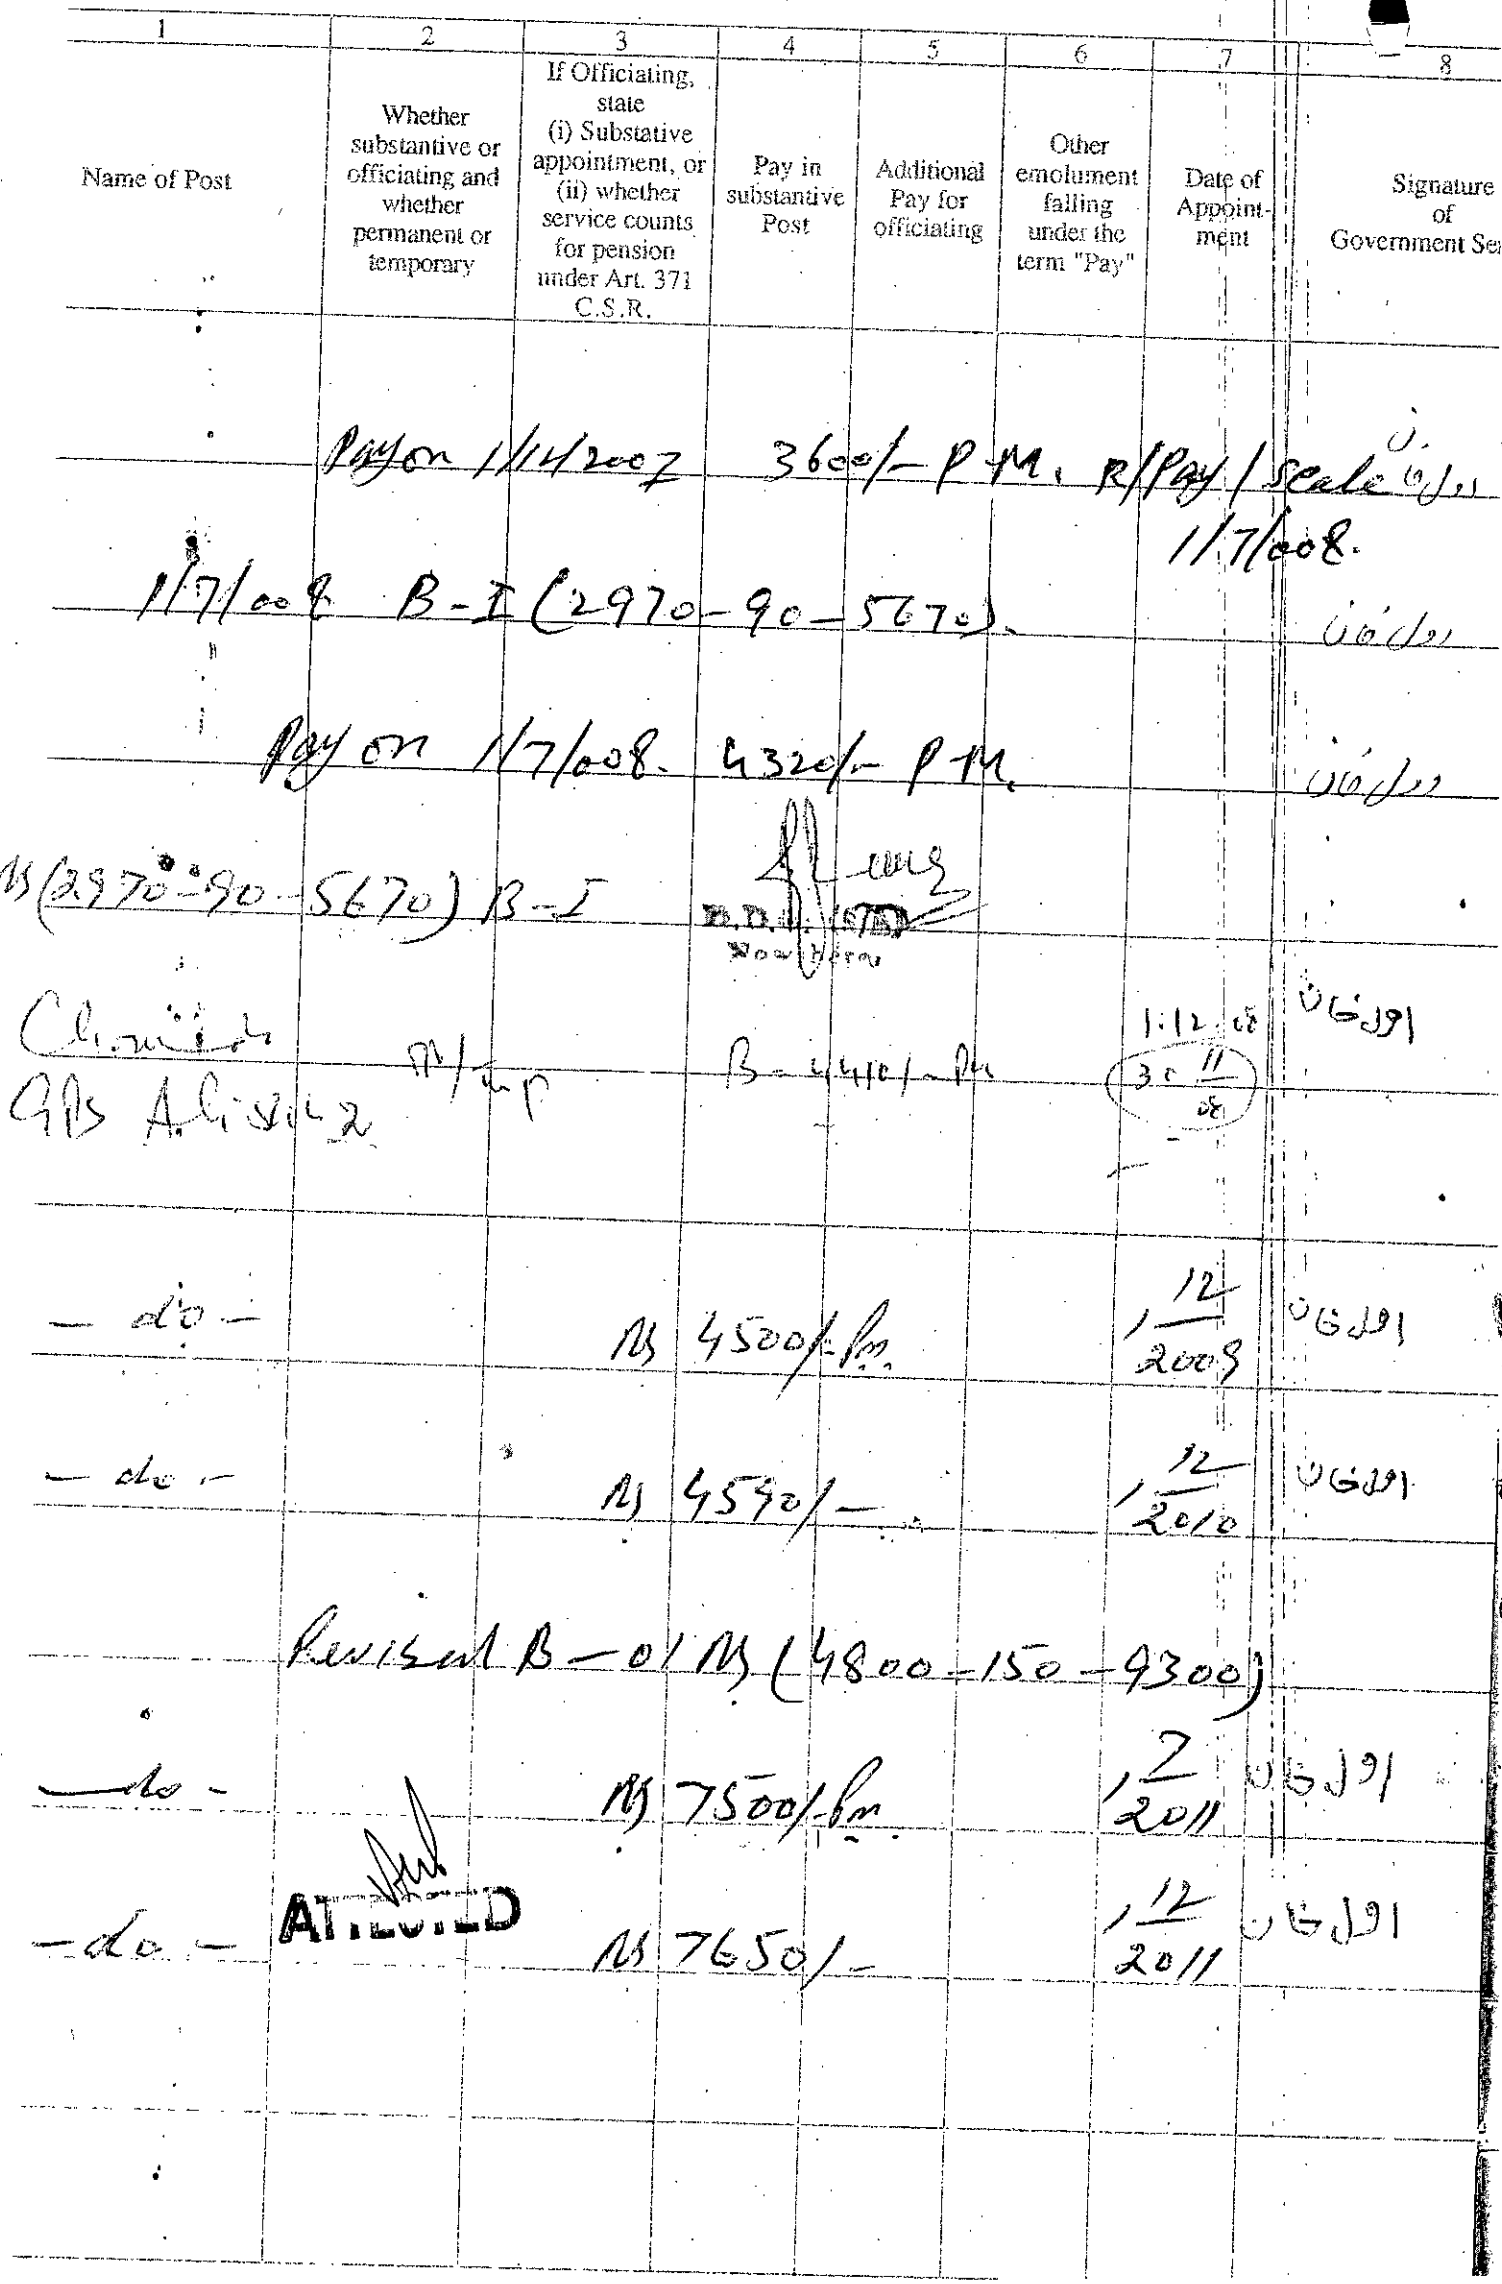 1 2 3 4 5 6 7 8
Name of Post
Whether
substantive or
officiating and
whether
permanent or
temporary
If Officiating,
state
(i) Substative
appointment, or
(ii) whether
service counts
for pension
under Art. 371
C.S.R.
Pay in
substantive
Post
Additional
Pay for
officiating
Other
emolument
falling
under the
term "Pay"
Date of
Appoint-
ment
Signature
of
Government Ser
Pay on 1/12/2007 3600/- P.M. R/Pay/Scale
1/7/008.
1/7/008 B-I (2970-90-5670).
Pay on 1/7/008. 4320/- P.M.
Rs (2970-90-5670) B-I
GPS 4410/- Pm 1.12.08 اول خان
30 11/08
- do - Rs 4500/- Pm. 1 12/2009 اول خان
- do - Rs 4590/- 1 12/2010 اول خان
Revised B-01 Rs (4800-150-9300)
- do - Rs 7500/- Pm 1 7/2011 اول خان
ATTESTED
- do - Rs 7650/- 1 12/2011 اول خان